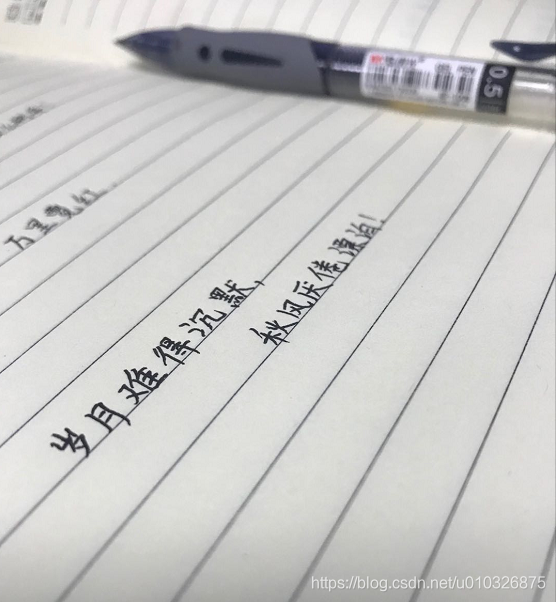 万里雪红
岁月难得沉默，
秋风厌倦漂泊！
0.5
https://blog.csdn.net/u010326875